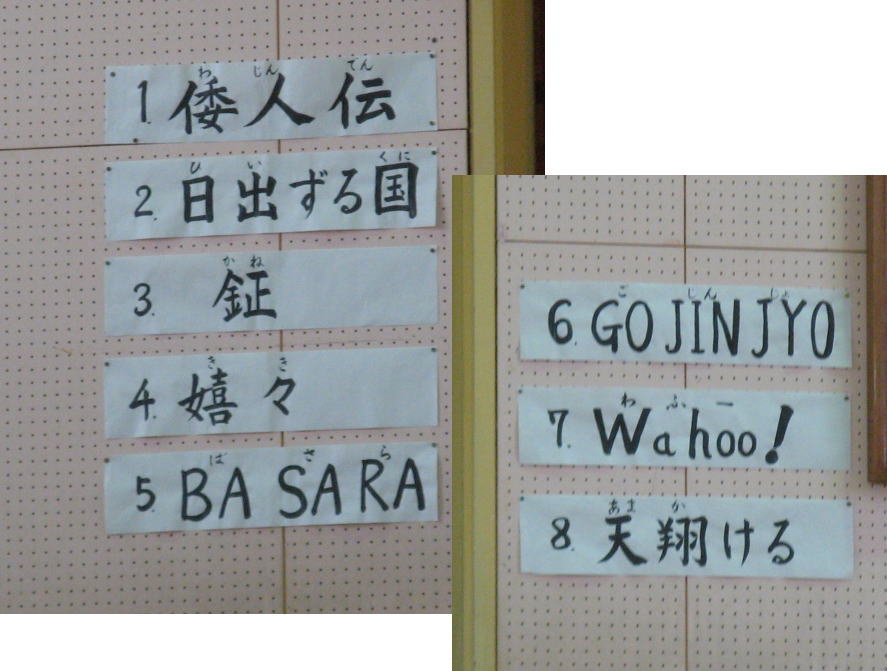 わ じん でん
1. 倭人伝
ひ い くに
2. 日出ずる国
かね
3. 鉦
き き
4. 嬉々
ば さ ら
5 BA SARA
ご じん じょ
6. GOJINJYO
わ ふ ー
7. Wahoo!
あま か
8. 天翔ける